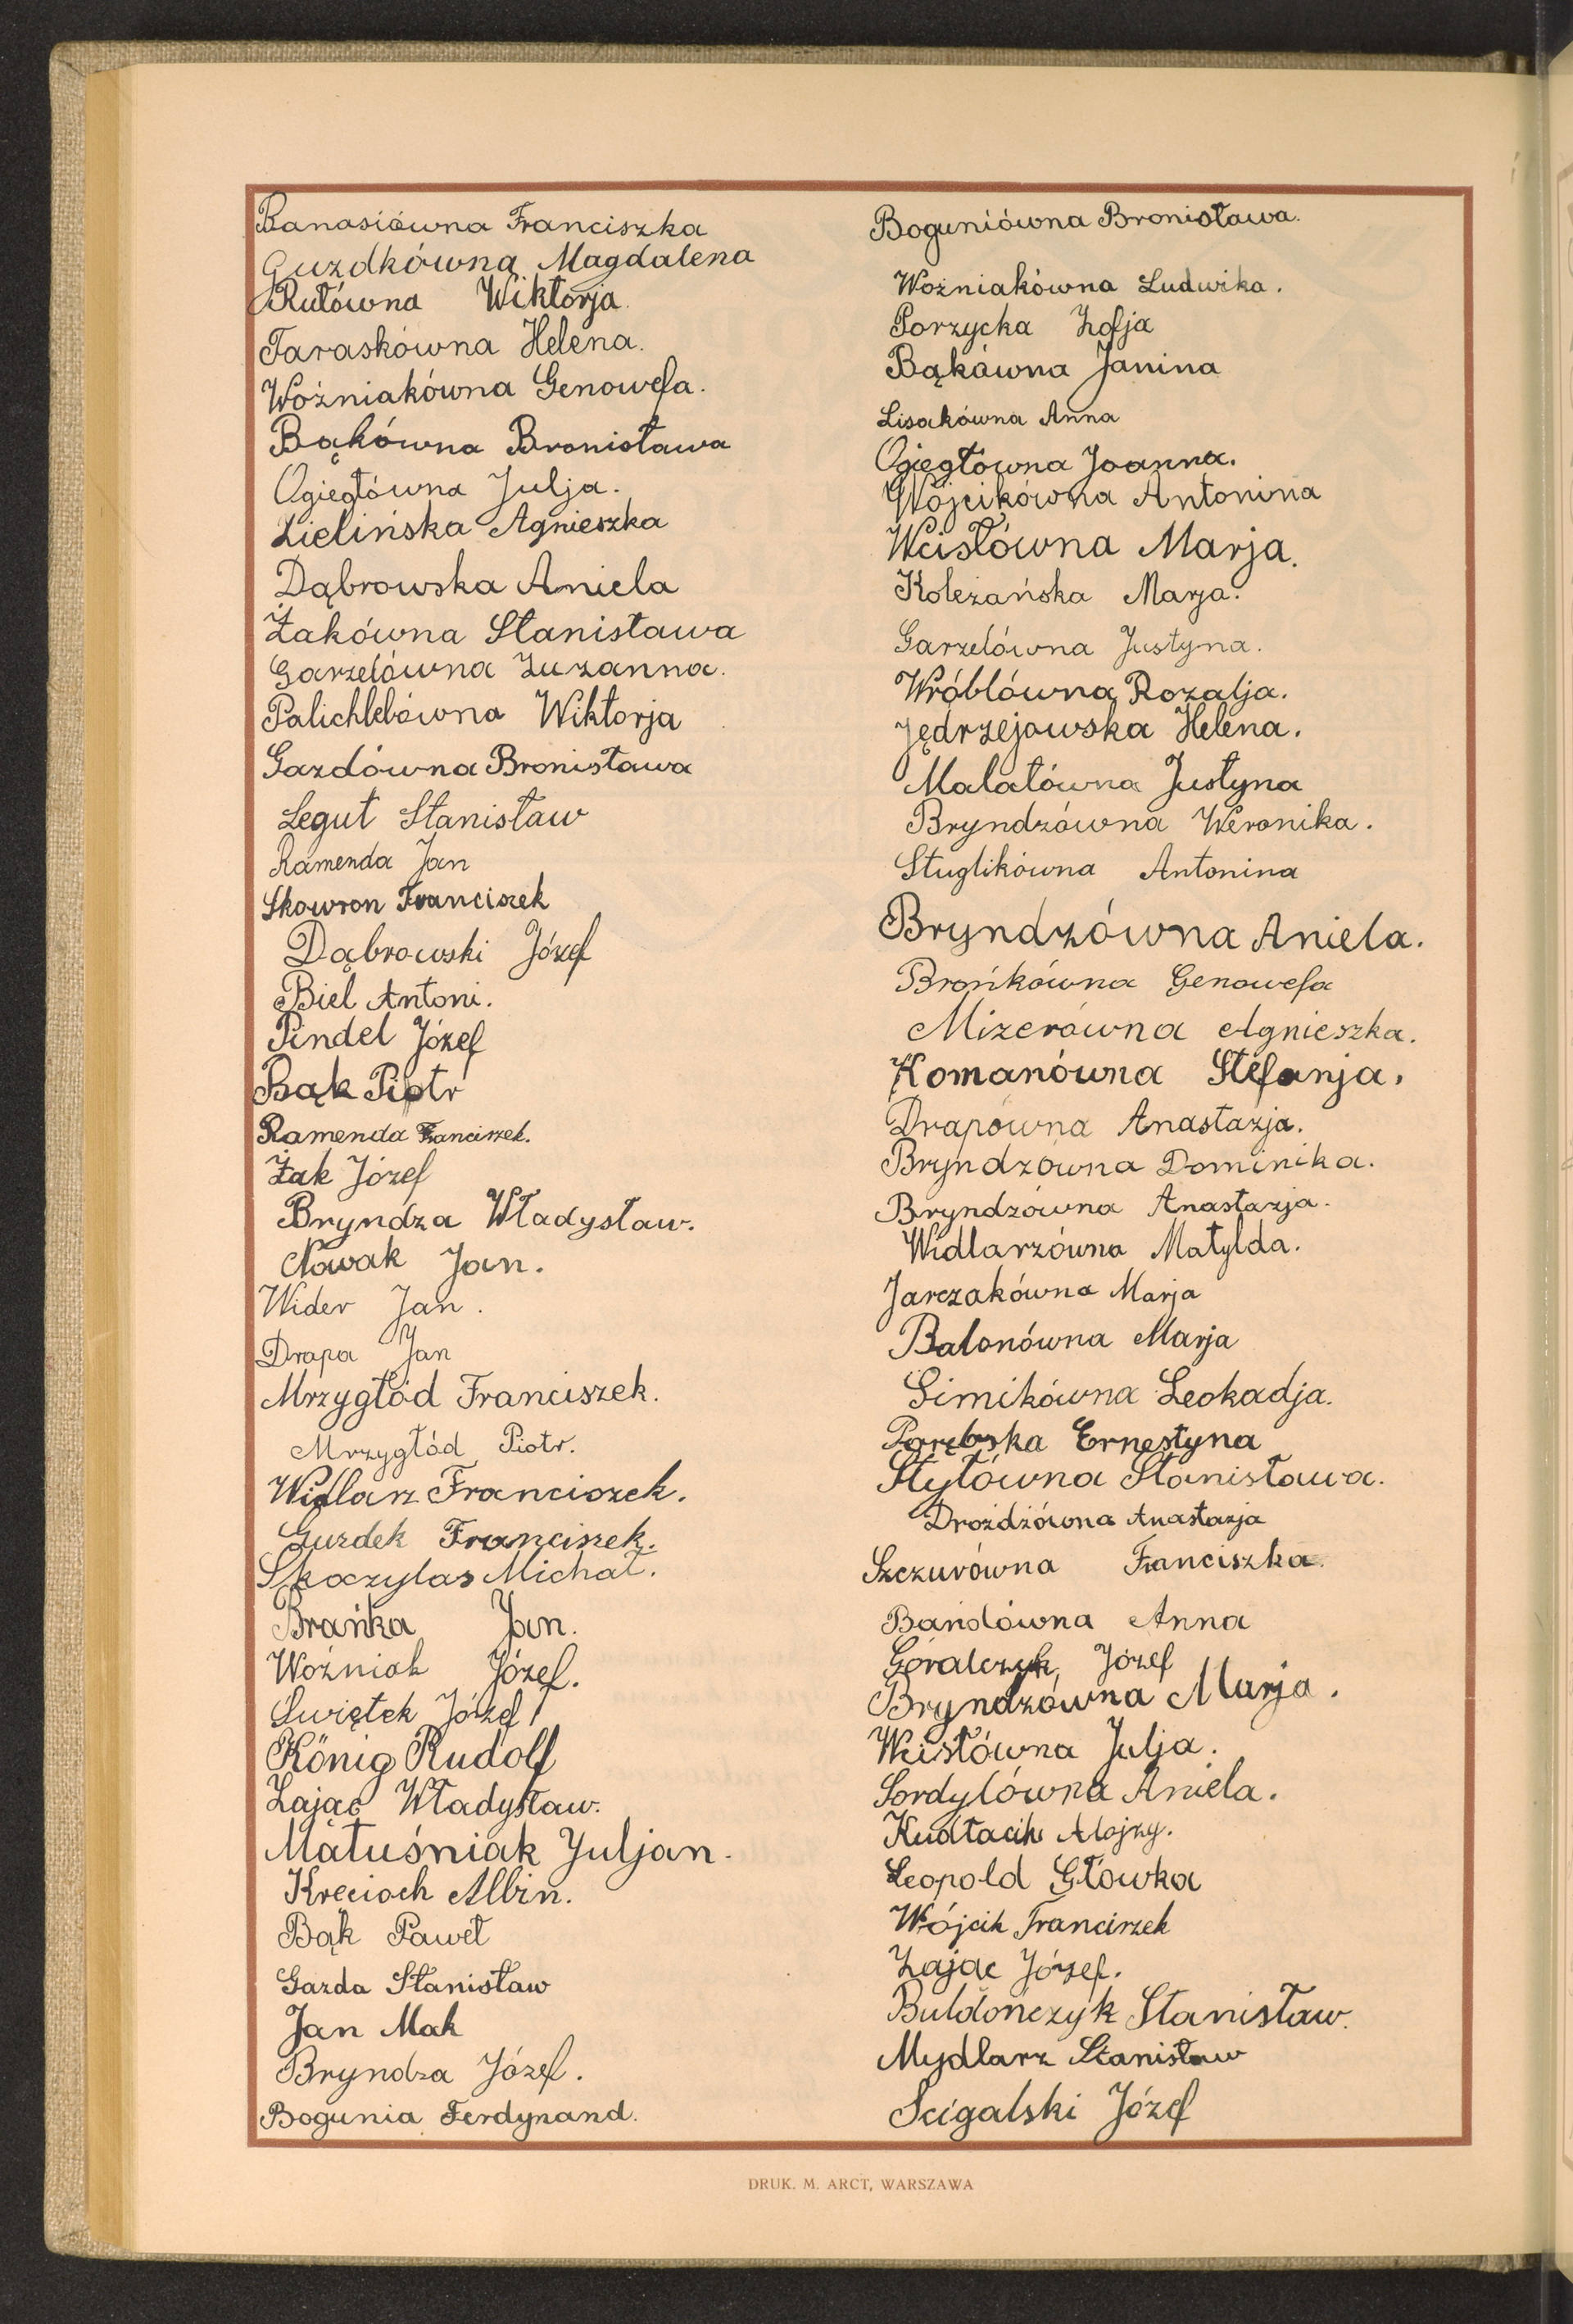 Banasiówna Franciszka
Guzdkówna Magdalena
Rutówna Wiktorja
Taraskówna Helena.
Woźniakówna Genowefa.
Bąkówna Bronisława
Ogiegłówna Julja.
Zielińska Agnieszka
Dąbrowska Aniela
Żakówna Stanisława
Garzelówna Zuzanna.
Palichlebówna Wiktorja
Gazdówna Bronisława
Legut Stanisław
Ramenda Jan
Skowron Franciszek
Dąbrowski Józef
Biel Antoni.
Pindel Józef
Bąk Piotr
Ramenda Franciszek.
Żak Józef
Bryndza Władysław.
Nowak Jan.
Wider Jan.
Drapa Jan
Mrzygłód Franciszek.
Mrzygłód Piotr.
Widlarz Franciszek.
Guzdek Franciszek.
Skoczylas Michał.
Brańka Jan.
Woźniak Józef.
Świętek Józef
König Rudolf
Zając Władysław.
Matuśniak Juljan.
Kręcioch Albin.
Bąk Paweł
Gazda Stanisław
Jan Mak
Bryndza Józef.
Bogunia Ferdynand.
Boguniówna Bronisława.
Woźniakówna Ludwika.
Porzycka Zofja
Bąkówna Janina
Lisakówna Anna
Ogiegłówna Joanna.
Wójcikówna Antonina
Wcisłówna Marja.
Koleżańska Marja.
Garzelówna Justyna.
Wróblówna Rozalja.
Jędrzejowska Helena.
Malatówna Justyna
Bryndzówna Weronika.
Stuglikówna Antonina
Bryndzówna Aniela.
Brońkówna Genowefa
Mizerówna Agnieszka.
Komanówna Stefanja.
Drapówna Anastazja.
Bryndzówna Dominika.
Bryndzówna Anastazja.
Widlarzówna Matylda.
Jarczakówna Marja
Balonówna Marja
Simikówna Leokadja.
Porębska Ernestyna
Styłówna Stanisława.
Drożdżówna Anastazja
Szczurówna Franciszka.
Bandówna Anna
Góralczyk Józef
Bryndzówna Marja.
Wcisłówna Julja.
Sordylówna Aniela.
Kudłacik Alojzy.
Leopold Główka
Wójcik Franciszek
Zając Józef.
Buldończyk Stanisław.
Mydlarz Stanisław
Ścigalski Józef
DRUK. M. ARCT, WARSZAWA